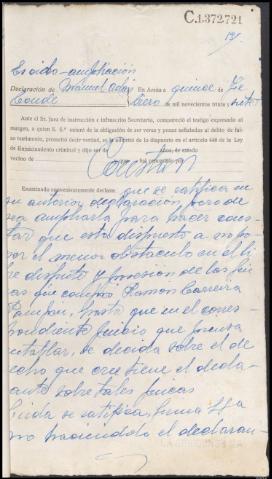 C.1.372.721
Escribo-ampliación
Declaración de Manuel
Conde
En Arzúa a quince de Fe
brero de mil novecientos treinta y siete
Ante el Sr. Juez de instrucción e infrascrito Secretario, compareció el testigo expresado al
margen, a quien S. S.ª enteró de la obligación de ser veraz y penas señaladas al delito de fal-
so testimonio, prometió decir verdad, en la forma dispuesta en el artículo 448 de la Ley
de Enjuiciamiento criminal y dijo ser de de estado
vecino de
Constan
Examinado convenientemente declara: que se ratifica en
su anterior declaración, pero de
sea ampliarla para hacer cons-
tar que está dispuesto a no po-
ner el menor obstáculo en el li
bre disfrute y posesión de las fin
cas que compró Ramón Carreira
Pampín, hasta que en el corres-
pondiente juicio que piensa
entablar, se decida sobre el de
recho que cree tiene el decla-
rante sobre tales fincas
Leída se ratifica, firma S.S.ª
no haciéndolo el declaran-